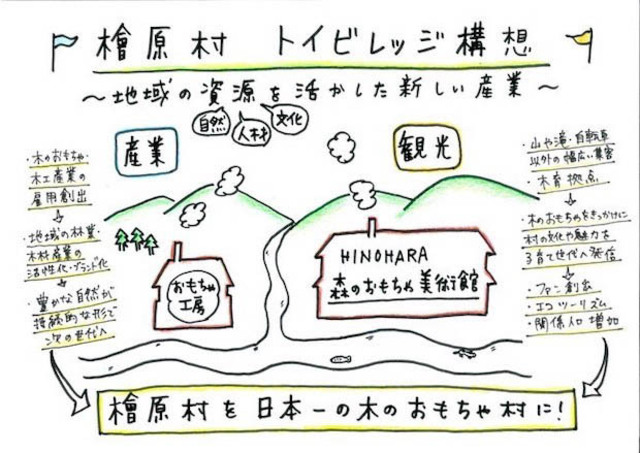 檜原村 トイビレッジ構想
～地域の資源を活かした新しい産業～
自然
人材
文化
産業
・木のおもちゃ
木工産業の
雇用創出
・地域の林業・
木材産業の
活性化・ブランド化
・豊かな自然が
持続的な形で
次の世代へ
おもちゃ
工房
観光
HINOHARA
森のおもちゃ美術館
・山や滝・自転車
以外の幅広い集客
・木育拠点
・木のおもちゃをきっかけに
村の文化や魅力を
子育て世代へ発信
・ファン創出
・エコツーリズム
・関係人口増加
檜原村を日本一の木のおもちゃ村に!